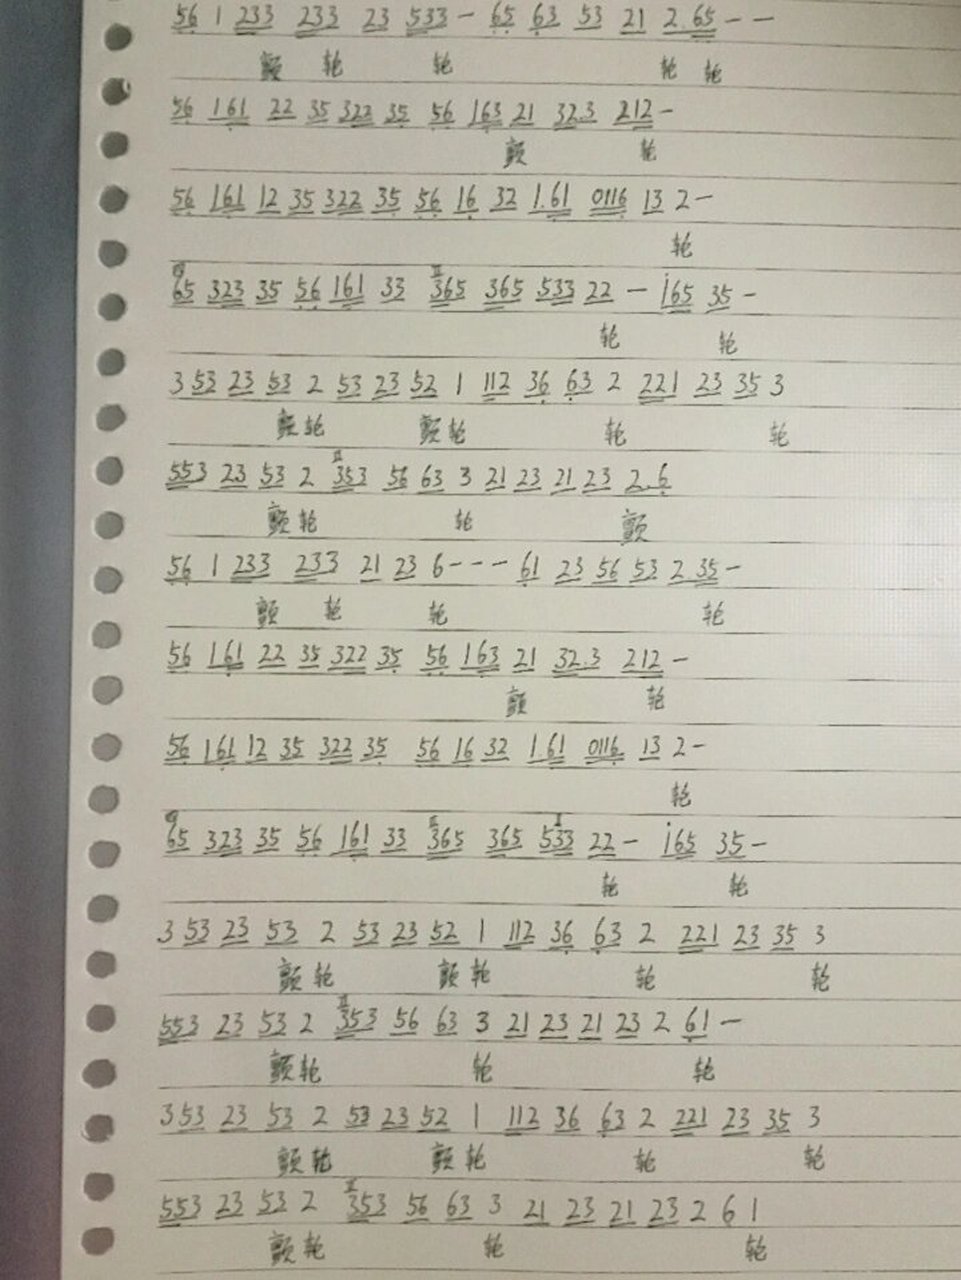 56 1 233 233 23 533 - 65 63 53 21 2.65 - -
颤 轮 轮 轮 轮
56 161 22 35 322 35 56 163 21 32.3 212 -
颤 轮
56 161 12 35 322 35 56 16 32 1.61 0116 13 2 -
轮
65 323 35 56 161 33 365 365 533 22 - i65 35 -
轮 轮
3 53 23 53 2 53 23 52 1 112 36 63 2 221 23 35 3
颤 轮 颤 轮 轮 轮
553 23 53 2 353 56 63 3 21 23 21 23 2.6
颤 轮 轮 颤
56 1 233 233 21 23 6 - - - 61 23 56 53 2 35 -
颤 轮 轮 轮
56 161 22 35 322 35 56 163 21 32.3 212 -
颤 轮
56 161 12 35 322 35 56 16 32 1.61 0116 13 2 -
轮
65 323 35 56 161 33 365 365 533 22 - i65 35 -
轮 轮
3 53 23 53 2 53 23 52 1 112 36 63 2 221 23 35 3
颤 轮 颤 轮 轮 轮
553 23 53 2 353 56 63 3 21 23 21 23 2 61 -
颤 轮 轮 轮
3 53 23 53 2 53 23 52 1 112 36 63 2 221 23 35 3
颤 轮 颤 轮 轮 轮
553 23 53 2 353 56 63 3 21 23 21 23 2 6 1
颤 轮 轮 轮